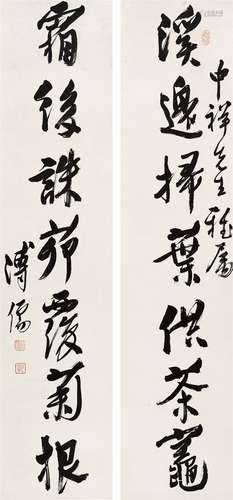 中祥先生雅属
溪邊掃葉供茶竈
霜後誅茆覆菊根
溥儒